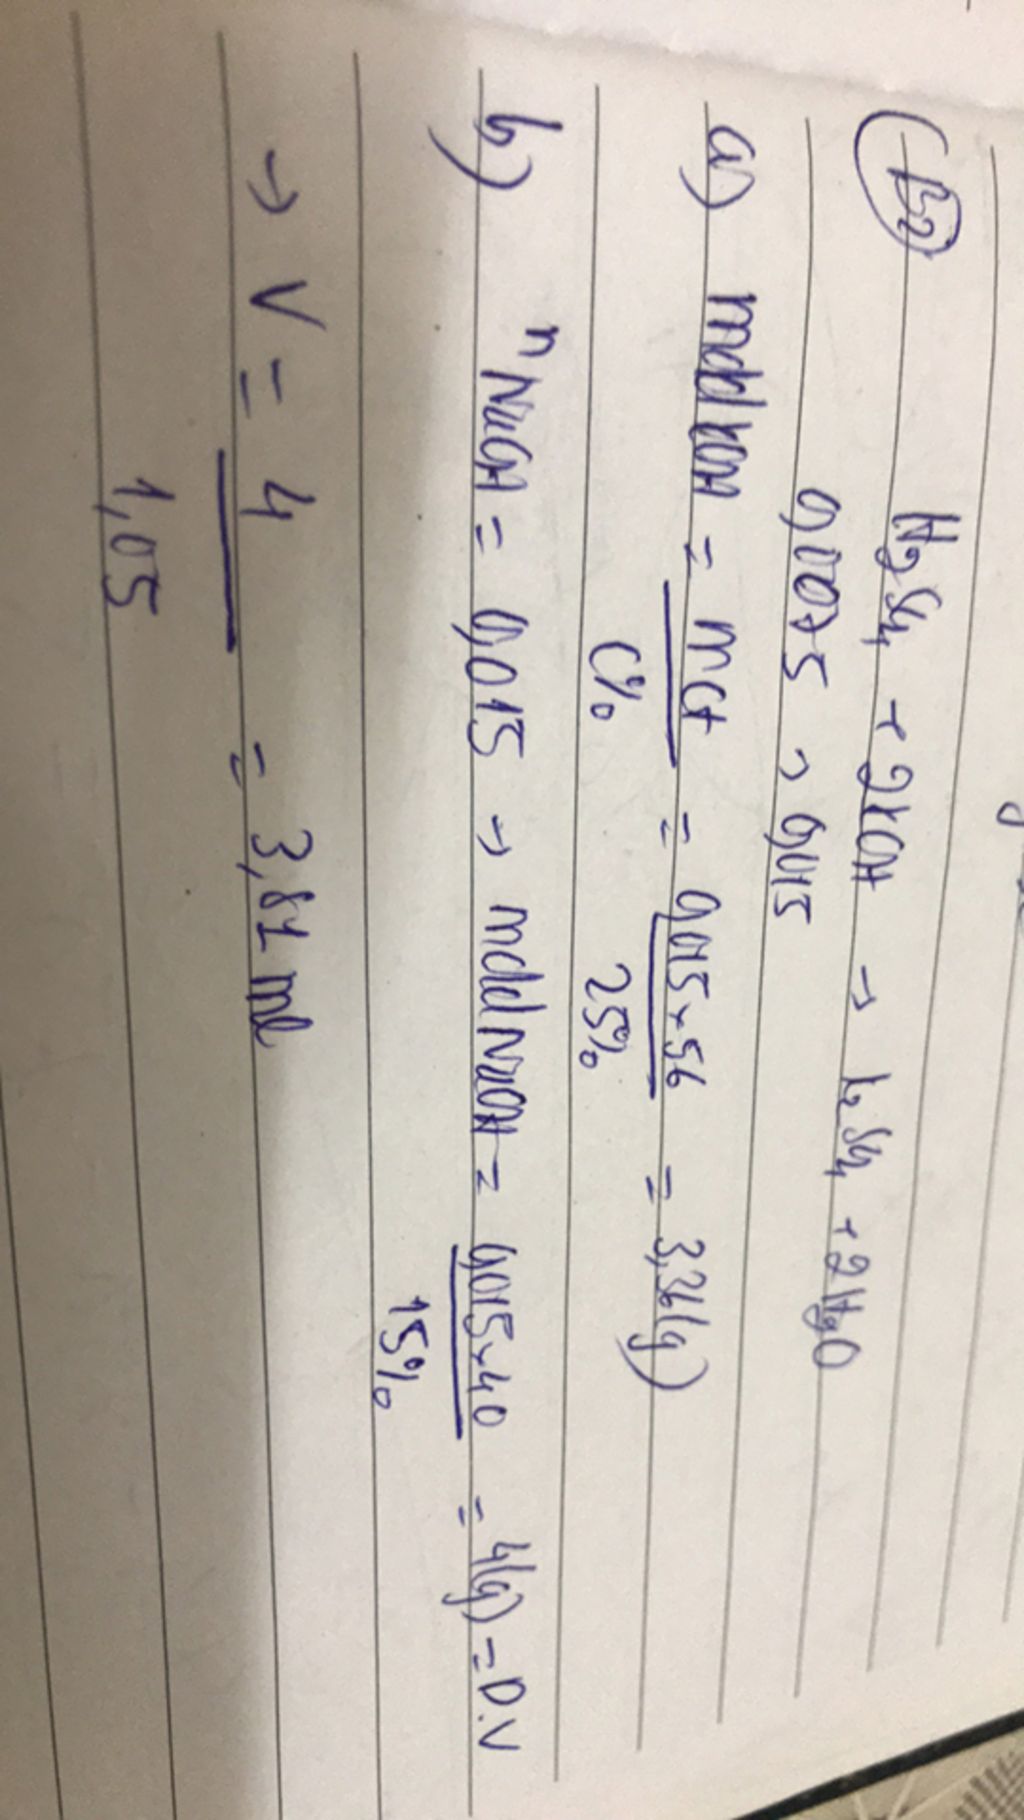 B2
H2SO4 + 2KOH → K2SO4 + 2H2O
0,0075 → 0,015
a) mddKOH = mct / C% = 0,015×56 / 25% = 3,36(g)
b) nNaOH = 0,015 → mddNaOH = 0,015×40 / 15% = 4(g) = D.V
→ V = 4 / 1,05 = 3,81 ml